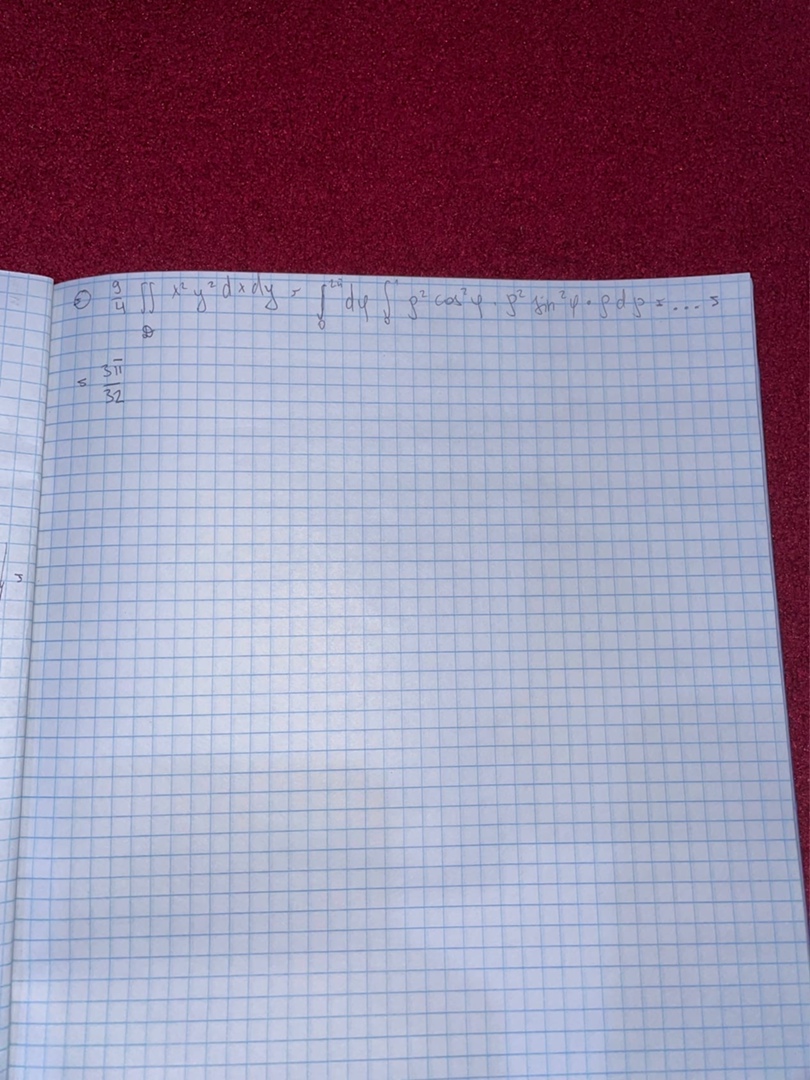 ⊜ 9/4 ∬ x² y² dx dy = ∫₀^2π dφ ∫₀^1 ρ² cos²φ · ρ² sin²φ · ρ dρ = ... =
D
= 3π/32